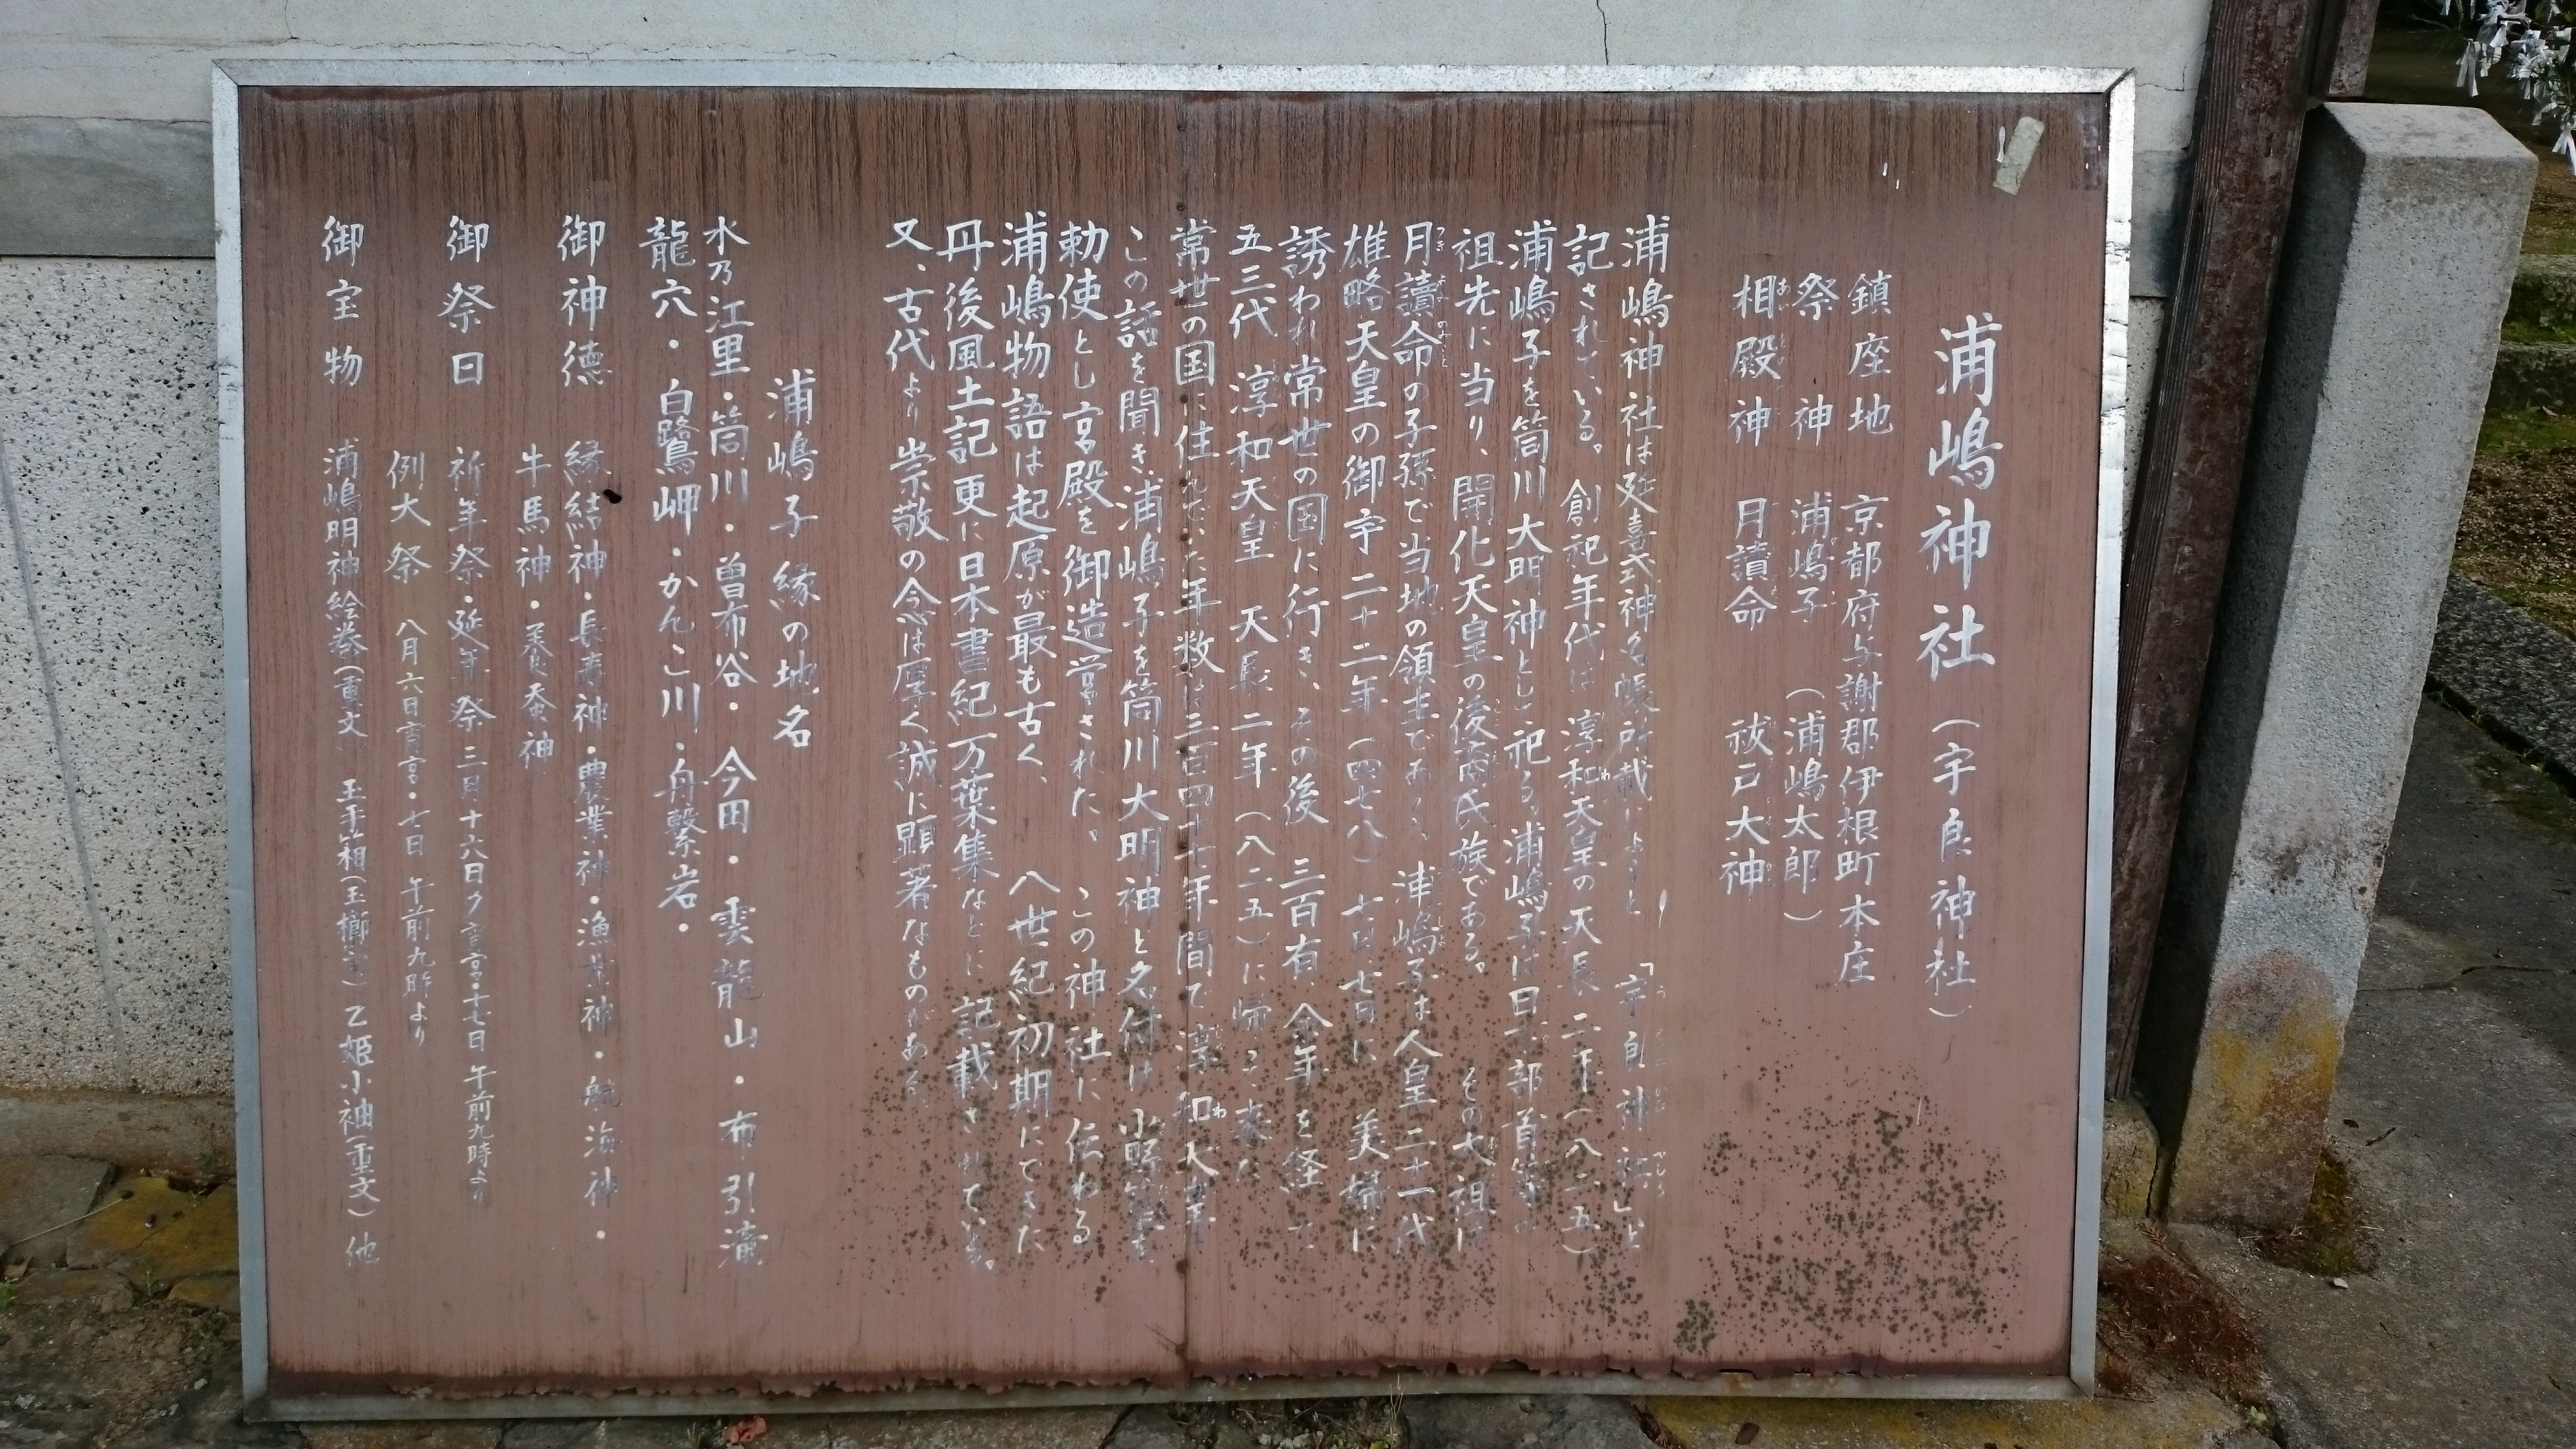 浦嶋神社（宇良神社）
鎮座地 京都府与謝郡伊根町本庄
祭神 浦嶋子（浦嶋太郎）
相殿神 月讀命 祓戸大神
浦嶋神社は延喜式神名帳所載によると「宇良神社」と
記されている。創祀年代は淳和天皇の天長二年（八二五）
浦嶋子を筒川大明神として祀る。浦嶋子は日下部首等の
祖先に当り、開化天皇の後裔氏族である。その大祖は
月讀命の子孫で当地の領主である。浦嶋子は人皇二十一代
雄略天皇の御宇二十二年（四七八）七月七日に美婦に
誘われ常世の国に行き、その後三百有余年を経て
五三代淳和天皇天長二年（八二五）に帰って来た
常世の国に住んでいた年数は三百四十七年間で淳和天皇は
この話を聞き、浦嶋子を筒川大明神と名付け小野篁を
勅使とし宮殿を御造営された。この神社に伝わる
浦嶋物語は起原が最も古く、八世紀初期にできた
丹後風土記更に日本書紀万葉集などに記載されている。
又、古代より崇敬の念は厚く誠に顕著なものがある。
浦嶋子縁の地名
水乃江里・筒川・曽布谷・今田・雲龍山・布引滝
龍穴・白鷺岬・かんこ川・舟繋岩・
御神徳 縁結神・長寿神・農業神・漁業神・航海神・
牛馬神・養蚕神
御祭日 祈年祭・延年祭 三月十六日夕宵宮・十七日午前九時より
例大祭 八月六日宵宮・七日午前九時より
御宝物 浦嶋明神絵巻（重文） 玉手箱（玉櫛笥）乙姫小袖（重文）他